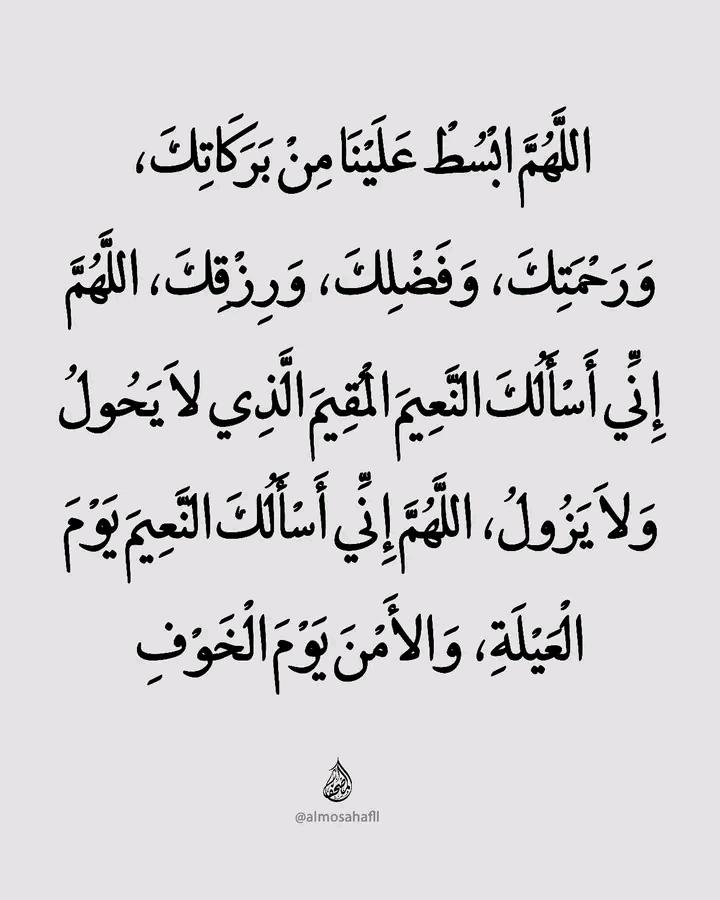 اللَّهُمَّ ابْسُطْ عَلَيْنَا مِنْ بَرَكَاتِكَ،
وَرَحْمَتِكَ، وَفَضْلِكَ، وَرِزْقِكَ، اللَّهُمَّ
إِنِّي أَسْأَلُكَ النَّعِيمَ الْمُقِيمَ الَّذِي لاَ يَحُولُ
وَلاَ يَزُولُ، اللَّهُمَّ إِنِّي أَسْأَلُكَ النَّعِيمَ يَوْمَ
الْعَيْلَةِ، وَالأَمْنَ يَوْمَ الْخَوْفِ
@almosahafll